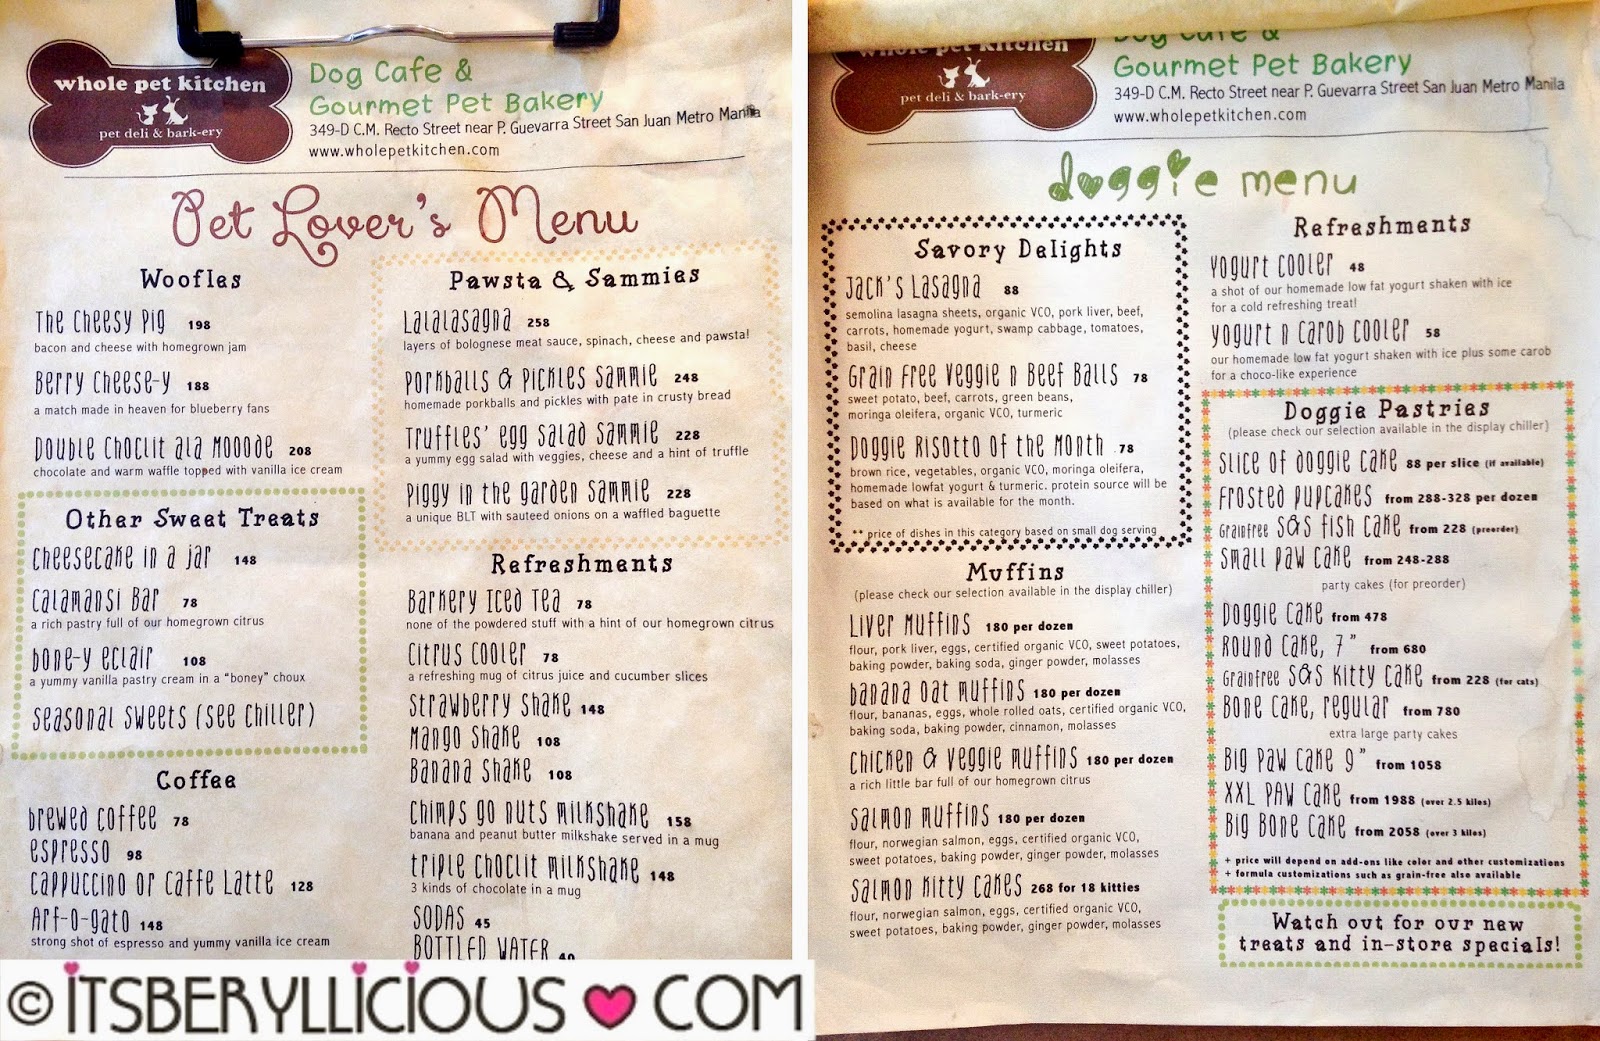 whole pet kitchen
pet deli & bark-ery
Dog Cafe &
Gourmet Pet Bakery
349-D C.M. Recto Street near P. Guevarra Street San Juan Metro Manila
www.wholepetkitchen.com
Pet Lover's Menu
Woofles
The Cheesy Pig 198
bacon and cheese with homegrown jam
Berry Cheese-y 188
a match made in heaven for blueberry fans
Double Choclit ala Mooode 208
chocolate and warm waffle topped with vanilla ice cream
Other Sweet Treats
Cheesecake in a Jar 148
Calamansi Bar 78
a rich pastry full of our homegrown citrus
Bone-y Eclair 108
a yummy vanilla pastry cream in a "boney" choux
Seasonal Sweets (see chiller)
Coffee
Brewed Coffee 78
Espresso 98
Cappuccino or Caffe Latte 128
Arf-o-gato 148
strong shot of espresso and yummy vanilla ice cream
Pawsta & Sammies
Lalalasagna 258
layers of bolognese meat sauce, spinach, cheese and pawsta!
Porkballs & Pickles Sammie 248
homemade porkballs and pickles with pate in crusty bread
Truffles' Egg Salad Sammie 228
a yummy egg salad with veggies, cheese and a hint of truffle
Piggy in the Garden Sammie 228
a unique BLT with sauteed onions on a waffled baguette
Refreshments
Barkery Iced Tea 78
none of the powdered stuff with a hint of our homegrown citrus
Citrus Cooler 78
a refreshing mug of citrus juice and cucumber slices
Strawberry Shake 148
Mango Shake 108
Banana Shake 108
Chimps Go Nuts Milkshake 158
banana and peanut butter milkshake served in a mug
Triple Choclit Milkshake 148
3 kinds of chocolate in a mug
SODAS 45
BOTTLED WATER 40
© iTSBERYLLiCiOUS COM
whole pet kitchen
pet deli & bark-ery
Dog Cafe &
Gourmet Pet Bakery
349-D C.M. Recto Street near P. Guevarra Street San Juan Metro Manila
www.wholepetkitchen.com
doggie menu
Savory Delights
Jack's Lasagna 88
semolina lasagna sheets, organic VCO, pork liver, beef,
carrots, homemade yogurt, swamp cabbage, tomatoes,
basil, cheese
Grain Free Veggie n Beef Balls 78
sweet potato, beef, carrots, green beans,
moringa oleifera, organic VCO, turmeric
Doggie Risotto of the Month 78
brown rice, vegetables, organic VCO, moringa oleifera,
homemade lowfat yogurt & turmeric. protein source will be
based on what is available for the month.
** price of dishes in this category based on small dog serving
Muffins
(please check our selection available in the display chiller)
Liver Muffins 180 per dozen
flour, pork liver, eggs, certified organic VCO, sweet potatoes,
baking powder, baking soda, ginger powder, molasses
Banana Oat Muffins 180 per dozen
flour, bananas, eggs, whole rolled oats, certified organic VCO,
baking soda, baking powder, cinnamon, molasses
Chicken & Veggie Muffins 180 per dozen
a rich little bar full of our homegrown citrus
Salmon Muffins 180 per dozen
flour, norwegian salmon, eggs, certified organic VCO,
sweet potatoes, baking powder, ginger powder, molasses
Salmon Kitty Cakes 268 for 18 kitties
flour, norwegian salmon, eggs, certified organic VCO,
sweet potatoes, baking powder, ginger powder, molasses
Refreshments
Yogurt Cooler 48
a shot of our homemade low fat yogurt shaken with ice
for a cold refreshing treat!
Yogurt n Carob Cooler 58
our homemade low fat yogurt shaken with ice plus some carob
for a choco-like experience
Doggie Pastries
(please check our selection available in the display chiller)
Slice of Doggie Cake 88 per slice (if available)
Frosted Pupcakes from 288-328 per dozen
Grainfree S&S Fish Cake from 228 (preorder)
Small Paw Cake from 248-288
party cakes (for preorder)
Doggie Cake from 478
Round Cake, 7" from 680
Grainfree S&S Kitty Cake from 228 (for cats)
Bone Cake, regular from 780
extra large party cakes
Big Paw Cake 9" from 1058
XXL Paw Cake from 1988 (over 2.5 kilos)
Big Bone Cake from 2058 (over 3 kilos)
+ price will depend on add-ons like color and other customizations
+ formula customizations such as grain-free also available
Watch out for our new
treats and in-store specials!